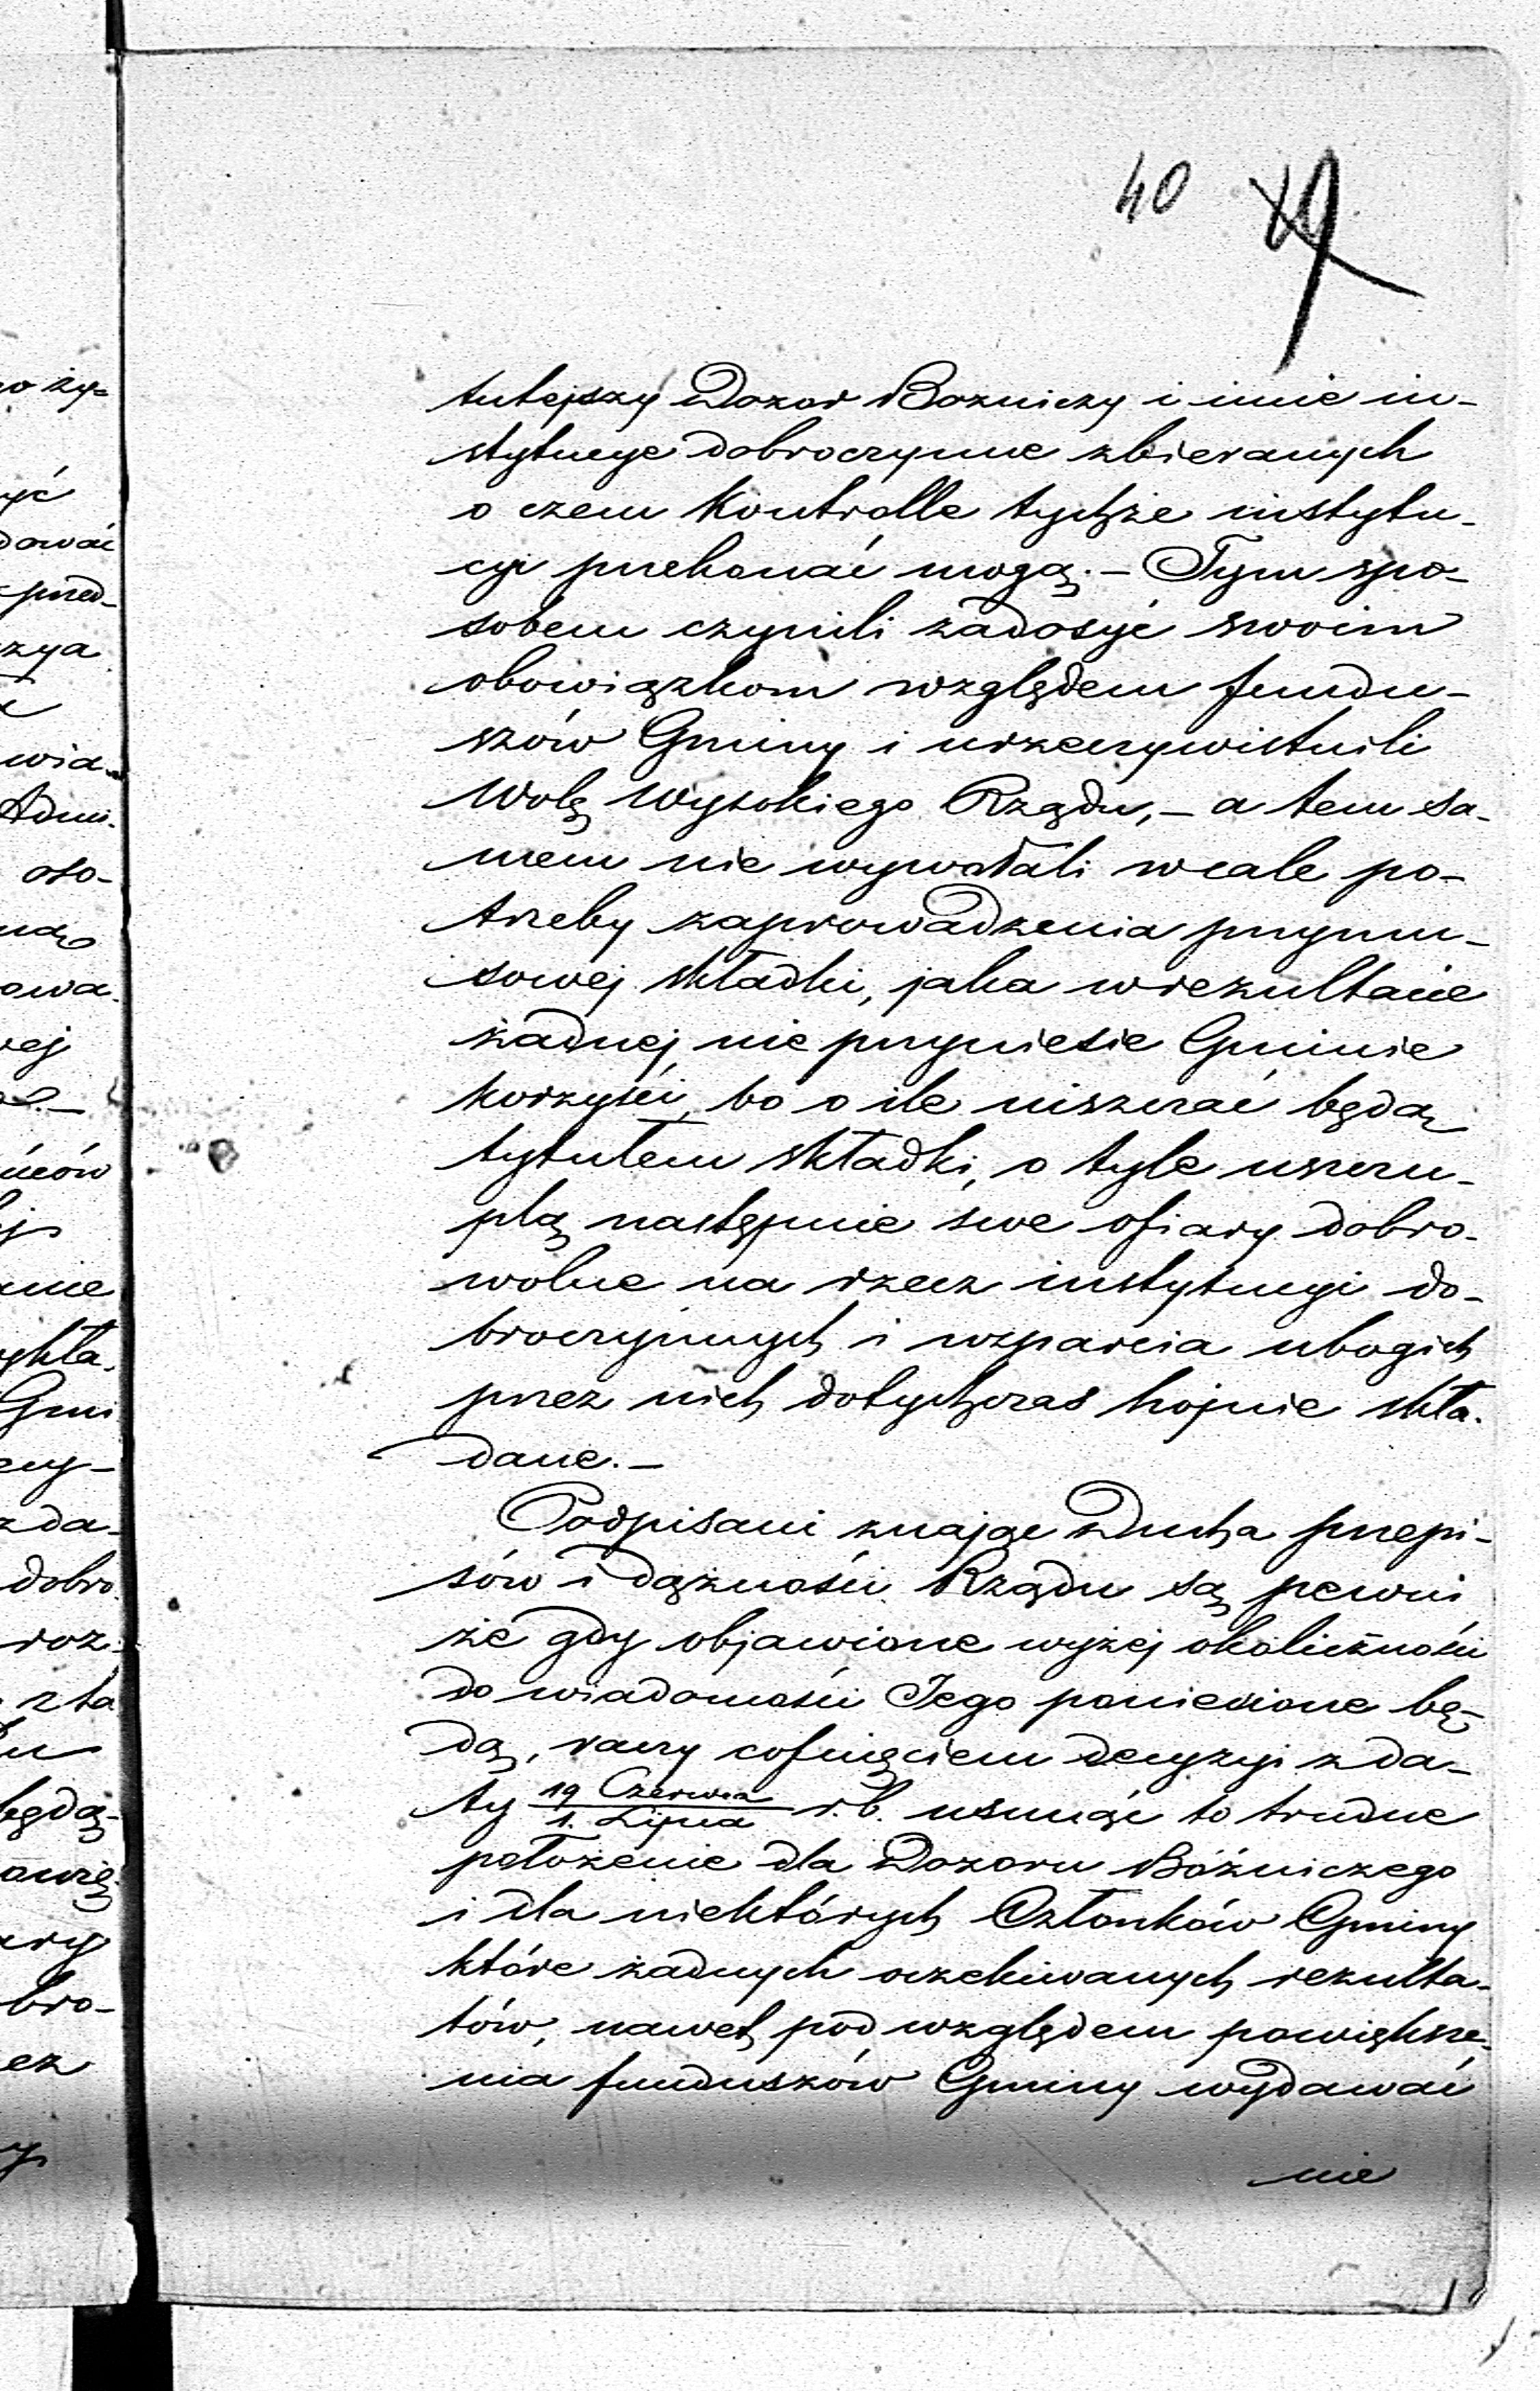 40
tutejszy Dozor Bozniczy i inne in-
stytucye dobroczynne zbieranych
o czem Kontrolle tychże instytu-
cyi przekonać mogą. – Tym spo-
sobem czynili zadosyć swoim
obowiązkom względem fundu-
szów Gminy i urzeczywistnili
Wolę Wysokiego Rządu, – a tem sa-
mem nie wywołali wcale po-
trzeby zaprowadzenia przymu-
sowej składki, jaka w rezultacie
żadnej nie przyniesie Gminie
korzyści, bo o ile uiszczać będą
tytułem składki, o tyle uszczu-
plą następnie swe ofiary dobro-
wolne na rzecz instytucyi do-
broczynnych i wsparcia ubogich
przez nich dotychczas hojnie skła-
dane. –
Podpisani znając Ducha przepi-
sów i dążności Rządu są pewni
że gdy objawione wyżej okoliczności
do wiadomości Jego poniesione bę-
dą, raczy cofnięciem decyzyi z da-
ty 19 Czerwca / 1. Lipca r.b. usunąć to trudne
położenie dla Dozoru Bóżniczego
i dla niektórych Członków Gminy
które żadnych oczekiwanych rezulta-
tów, nawet pod względem powiększe-
nia funduszów Gminy wydawać
nie